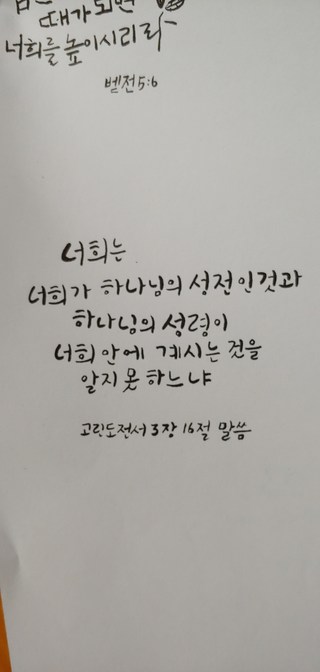 때가 되면
너희를 높이시리라
벧전 5:6
너희는
너희가 하나님의 성전인것과
하나님의 성령이
너희 안에 계시는 것을
알지 못 하느냐
고린도전서 3장 16절 말씀